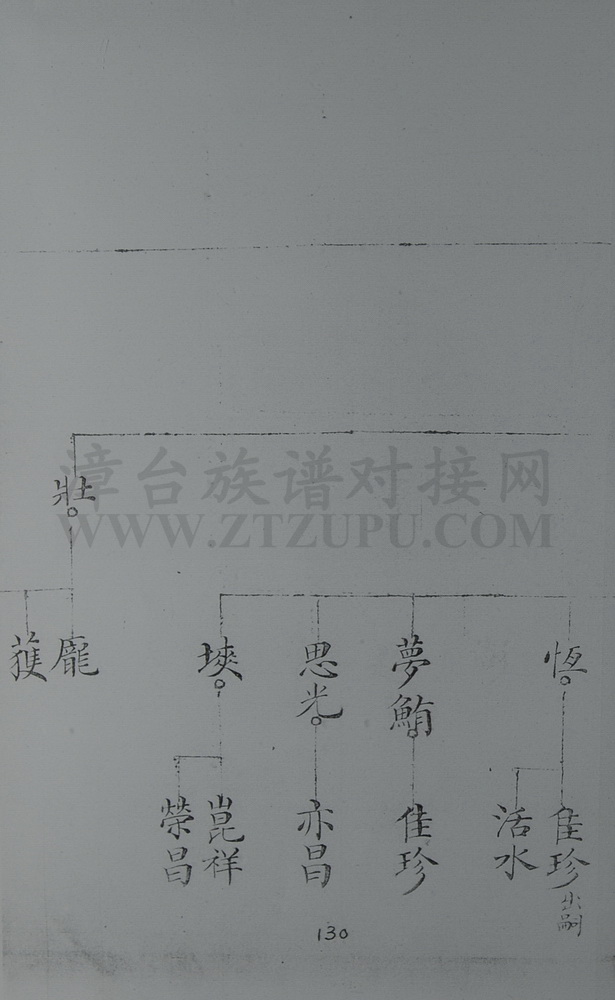 漳台族谱对接网
WWW.ZTZUPU.COM
壯
恆
夢鮪
思光
堜
龐
蒦
佳珍 出嗣
活水
佳珍
亦昌
崑祥
榮昌
130